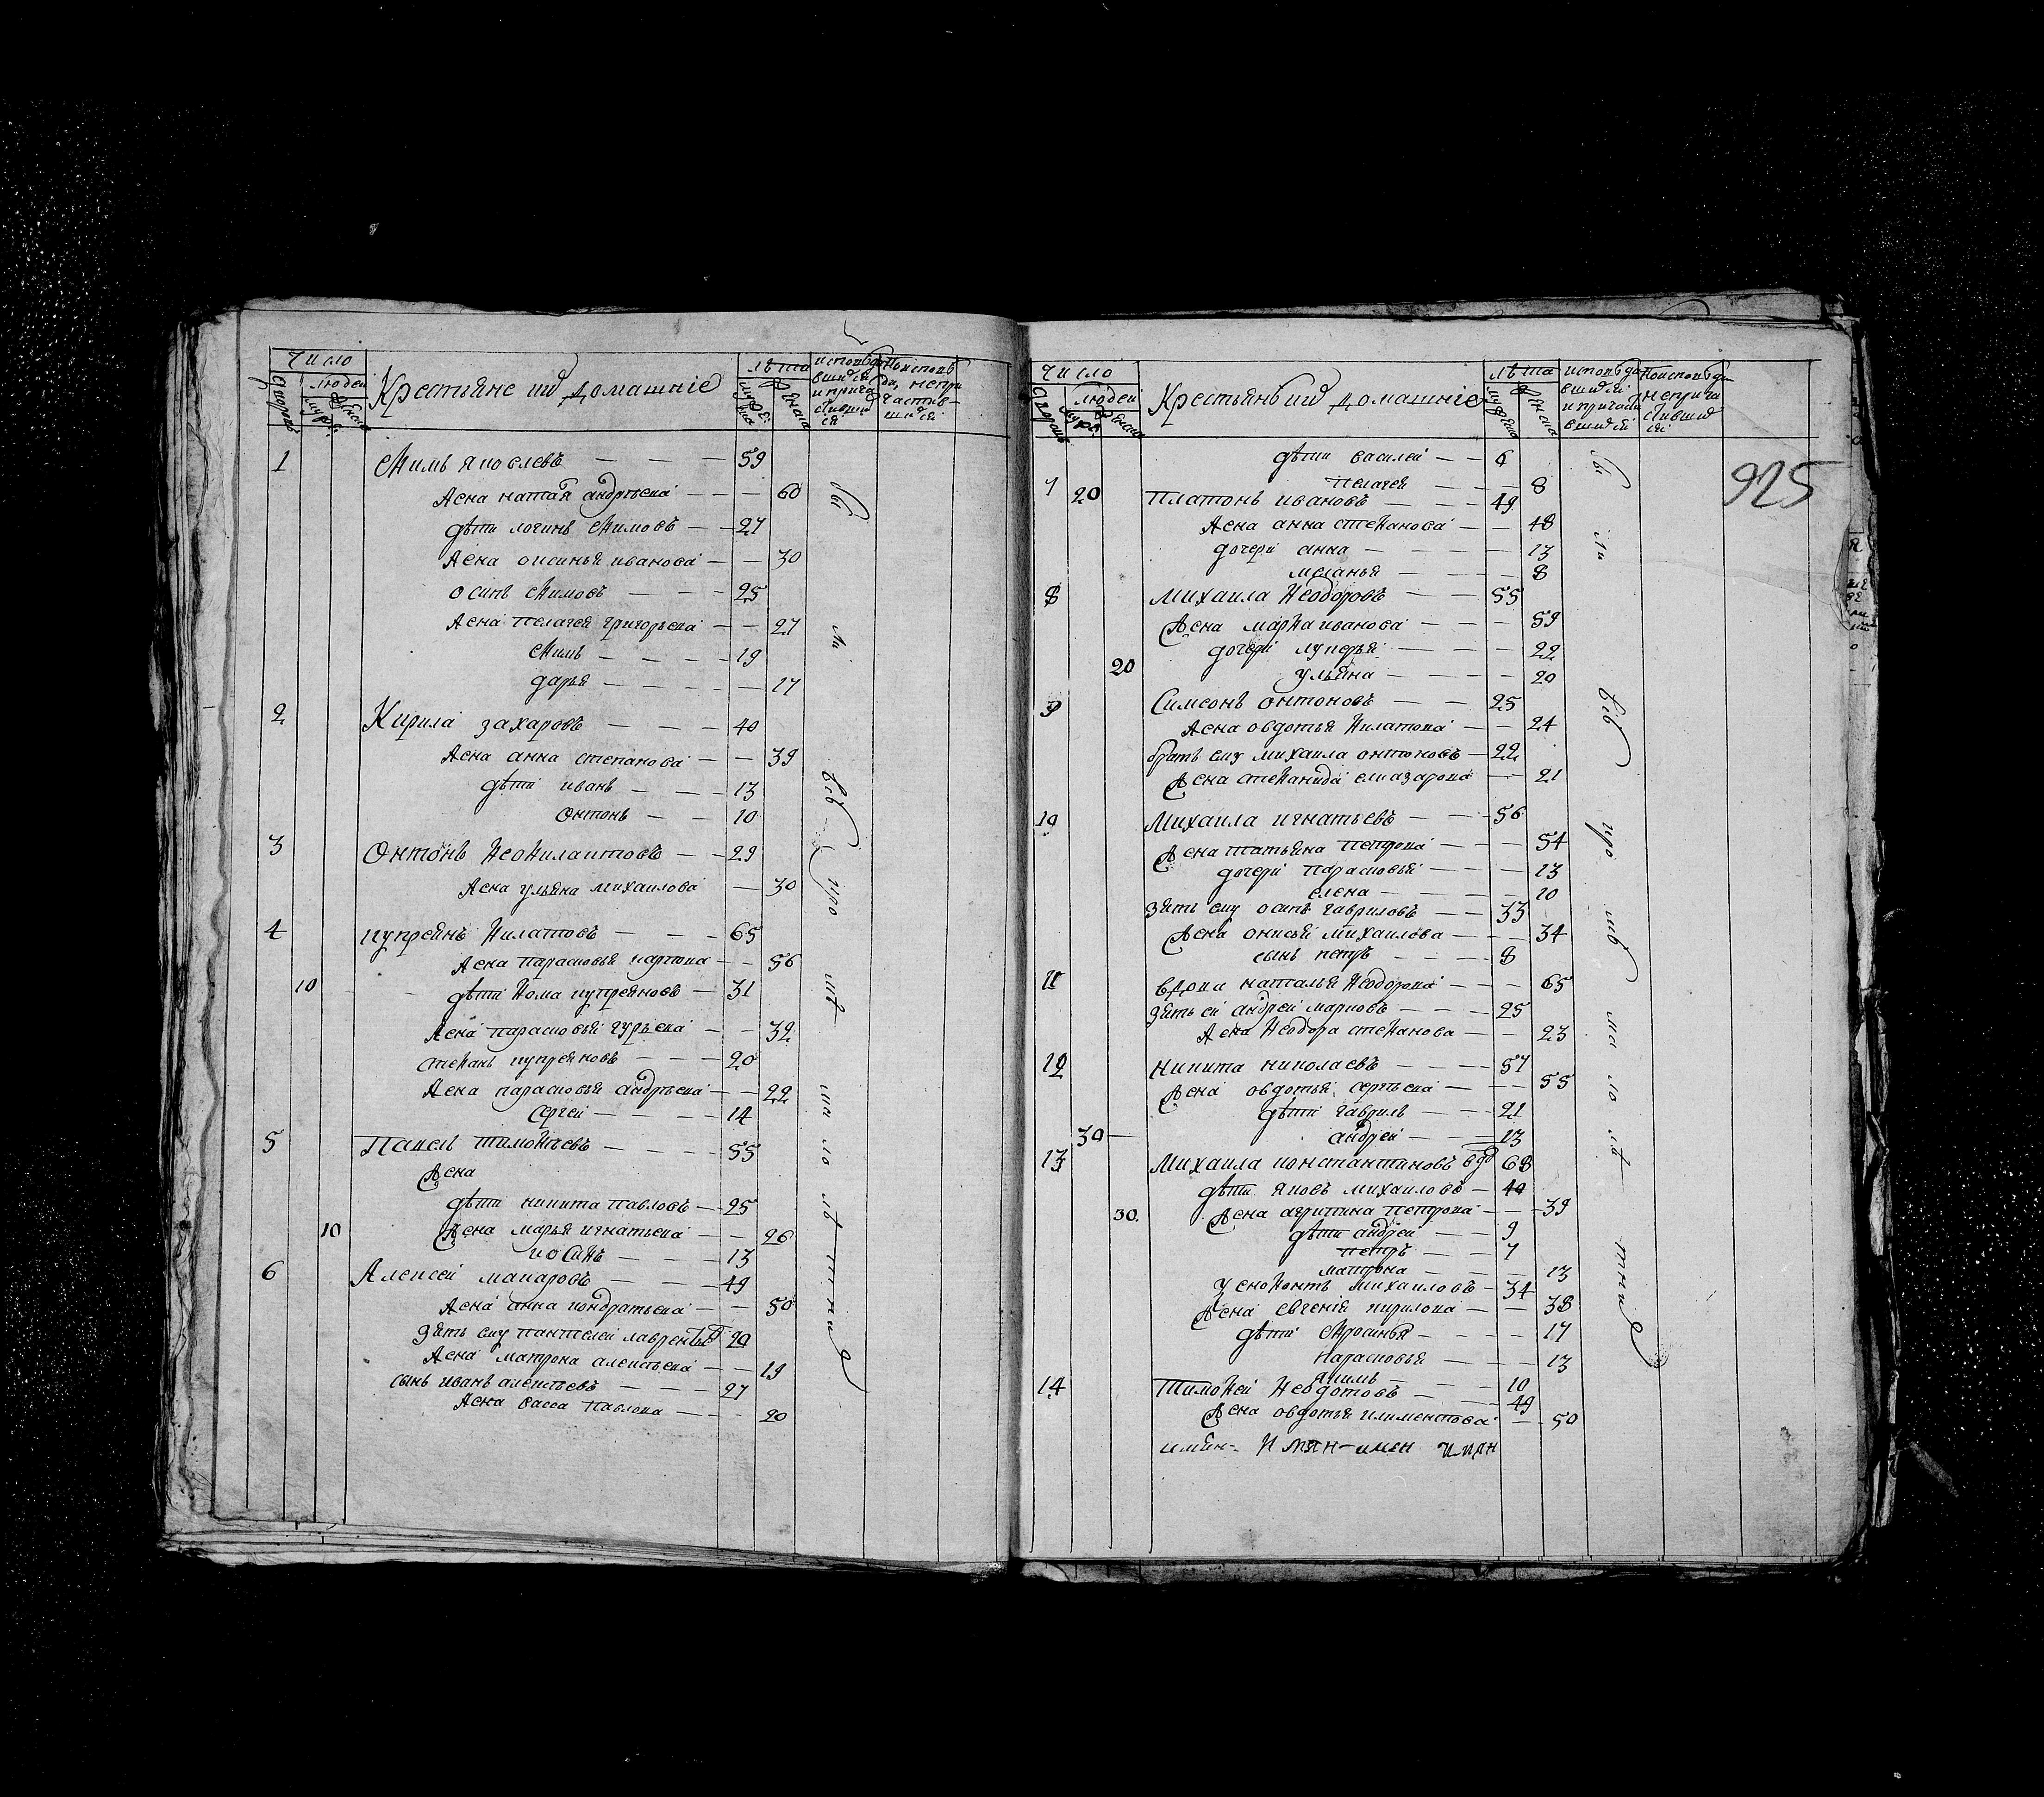 Число
людей
Крестьяне ихъ домашнїе
лѣта
1 Ѳимъ яковлевъ — — — 59
Жена наталя андрѣева — — — 60
дѣти логинъ Ѳимовъ — — 27
Жена оксинья иванова — — 30
осипъ Ѳимовъ — — — 25
Жена Пелагея григорьева — — 27
Ѳимъ — — — — 19
дарья — — — — — 17
2 Кирила захаровъ — — — 40
Жена анна степанова — — 39
дѣти иванъ — — — 13
Онтонъ — — 10
3 Онтонъ Ѳеоѳилактовъ — — 29
Жена ульяна михаилова — 30
4 купреянъ Ѳилатовъ — — — 65
Жена парасковья карпова — — 56
10 дѣти Ѳома купреяновъ — 31
Жена парасковья гурьева — — 32
стеѳанъ купреяновъ — — — 20
Жена парасковья андрѣева — — 22
Сергеи — — — — 14
5 Павелъ тимоѳѣевъ — — — — 55
Жена
дѣти никита павловъ — 25
10 Жена марья игнатьева — — 26
иосиѳъ — — — 13
6 Алексеи макаровъ — — — 49
Жена анна кондратьева — — 50
Зять ему пантелеи лаврентьевъ 20
Жена матрона алексѣева — — 19
сынъ иванъ алексѣевъ — — — 27
Жена васса павлова — — — 20
бы ли всѣ про ми ло лѣтние
Число
людей
Крестьянъ ихъ домашнїе
лѣта
925
дѣти василеи — — 6
Пелагея — — — 8
7 20 Платонъ ивановъ — — 49
Жена анна стеѳанова — — 48
дочери анна — — — — 13
меланья — — — — 8
8 Михаила Ѳеодоровъ — — 55
Жена марѳа иванова — — — 59
дочери лукерья — — — 22
20 ульяна — — — — 20
9 Симеонъ онтоновъ — — 25
Жена овдотья Ѳилатова — — 24
братъ ему михаила онтоновъ — 22
Жена стеѳанида елиазарова — — 21
10 Михаила игнатьевъ — — — 56
Жена татьяна петрова — — — 54
дочери парасковья — — — 13
елена — — — — 10
зять ему осипъ гавриловъ — — 33
Жена онисья михаилова — — — 34
сынъ петръ — — — 8
11 вдова наталья Ѳеодорова — — — 65
зять еи андреи марковъ — — — 25
Жена Ѳеодора стеѳанова — — 23
12 никита николаевъ — — — 57
Жена овдотья сергѣева — — — 55
дѣти гаврилъ — — — 21
30 — андреи — — — 13
13 Михаила константиновъ вдов 68
дѣти яковъ михаиловъ — 40
30. Жена агрипина петрова — — 39
дѣти андреи — — 9
петръ — — 7
матрона — — — 13
ксеноѳонтъ михаиловъ — 34
Жена евгения кирилова — — 38
дѣти Ѳросинья — — — — 17
парасковья — — — 13
якимъ — — — 10
14 Тимоѳеи Ѳеодотовъ — — 49
Жена овдотья климентова — 50
имѣн- И мян-имен и мян
бы ли всѣ про ми ло лѣтние